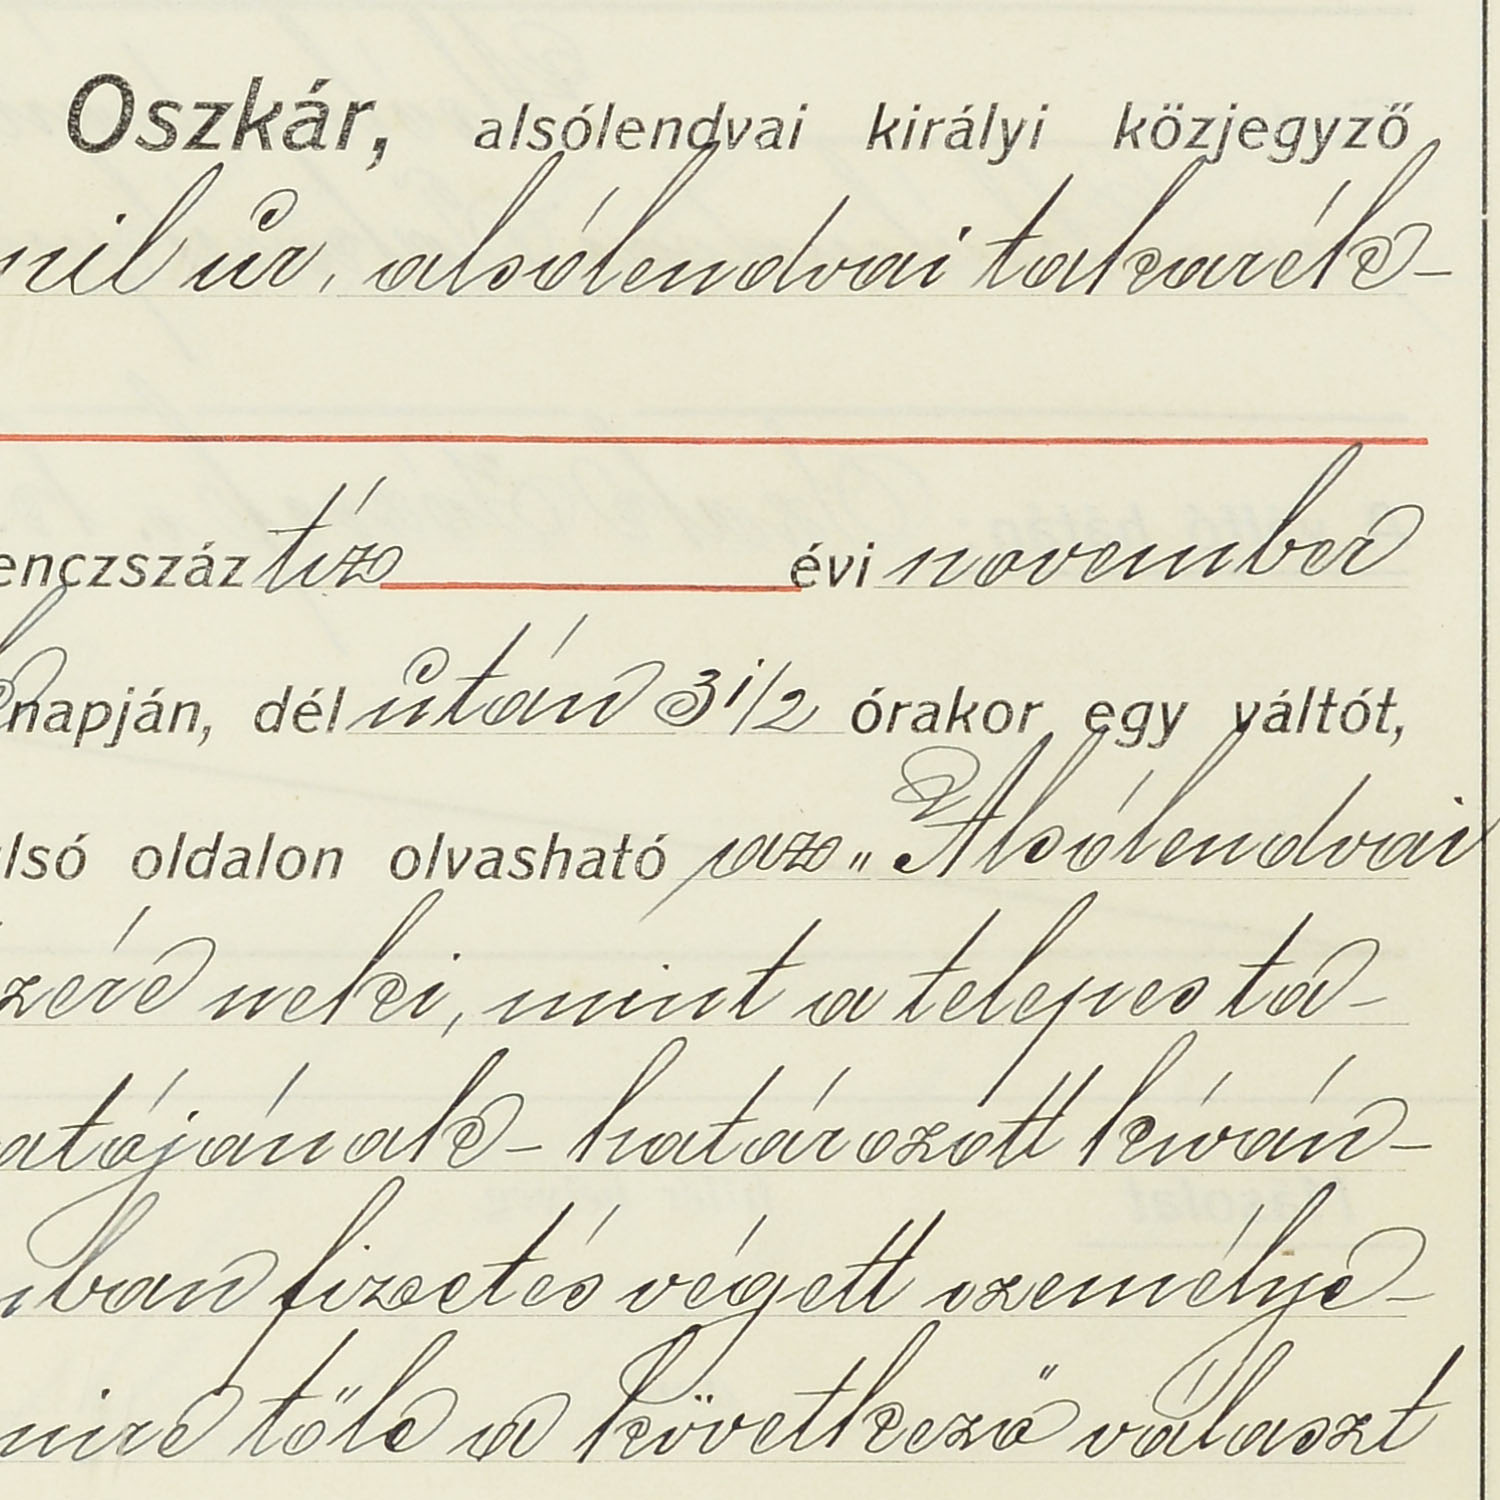 Oszkár, alsólendvai királyi közjegyző
nil úr, alsólendvai takarék-
enczszáz tíz évi november
napján, dél után 3 1/2 órakor egy váltót,
alsó oldalon olvasható az „Alsólendvai
szére neki, mint a telepes ta-
atójának - határozott kíván-
ban fizetés végett személye-
mire tőle a következő választ